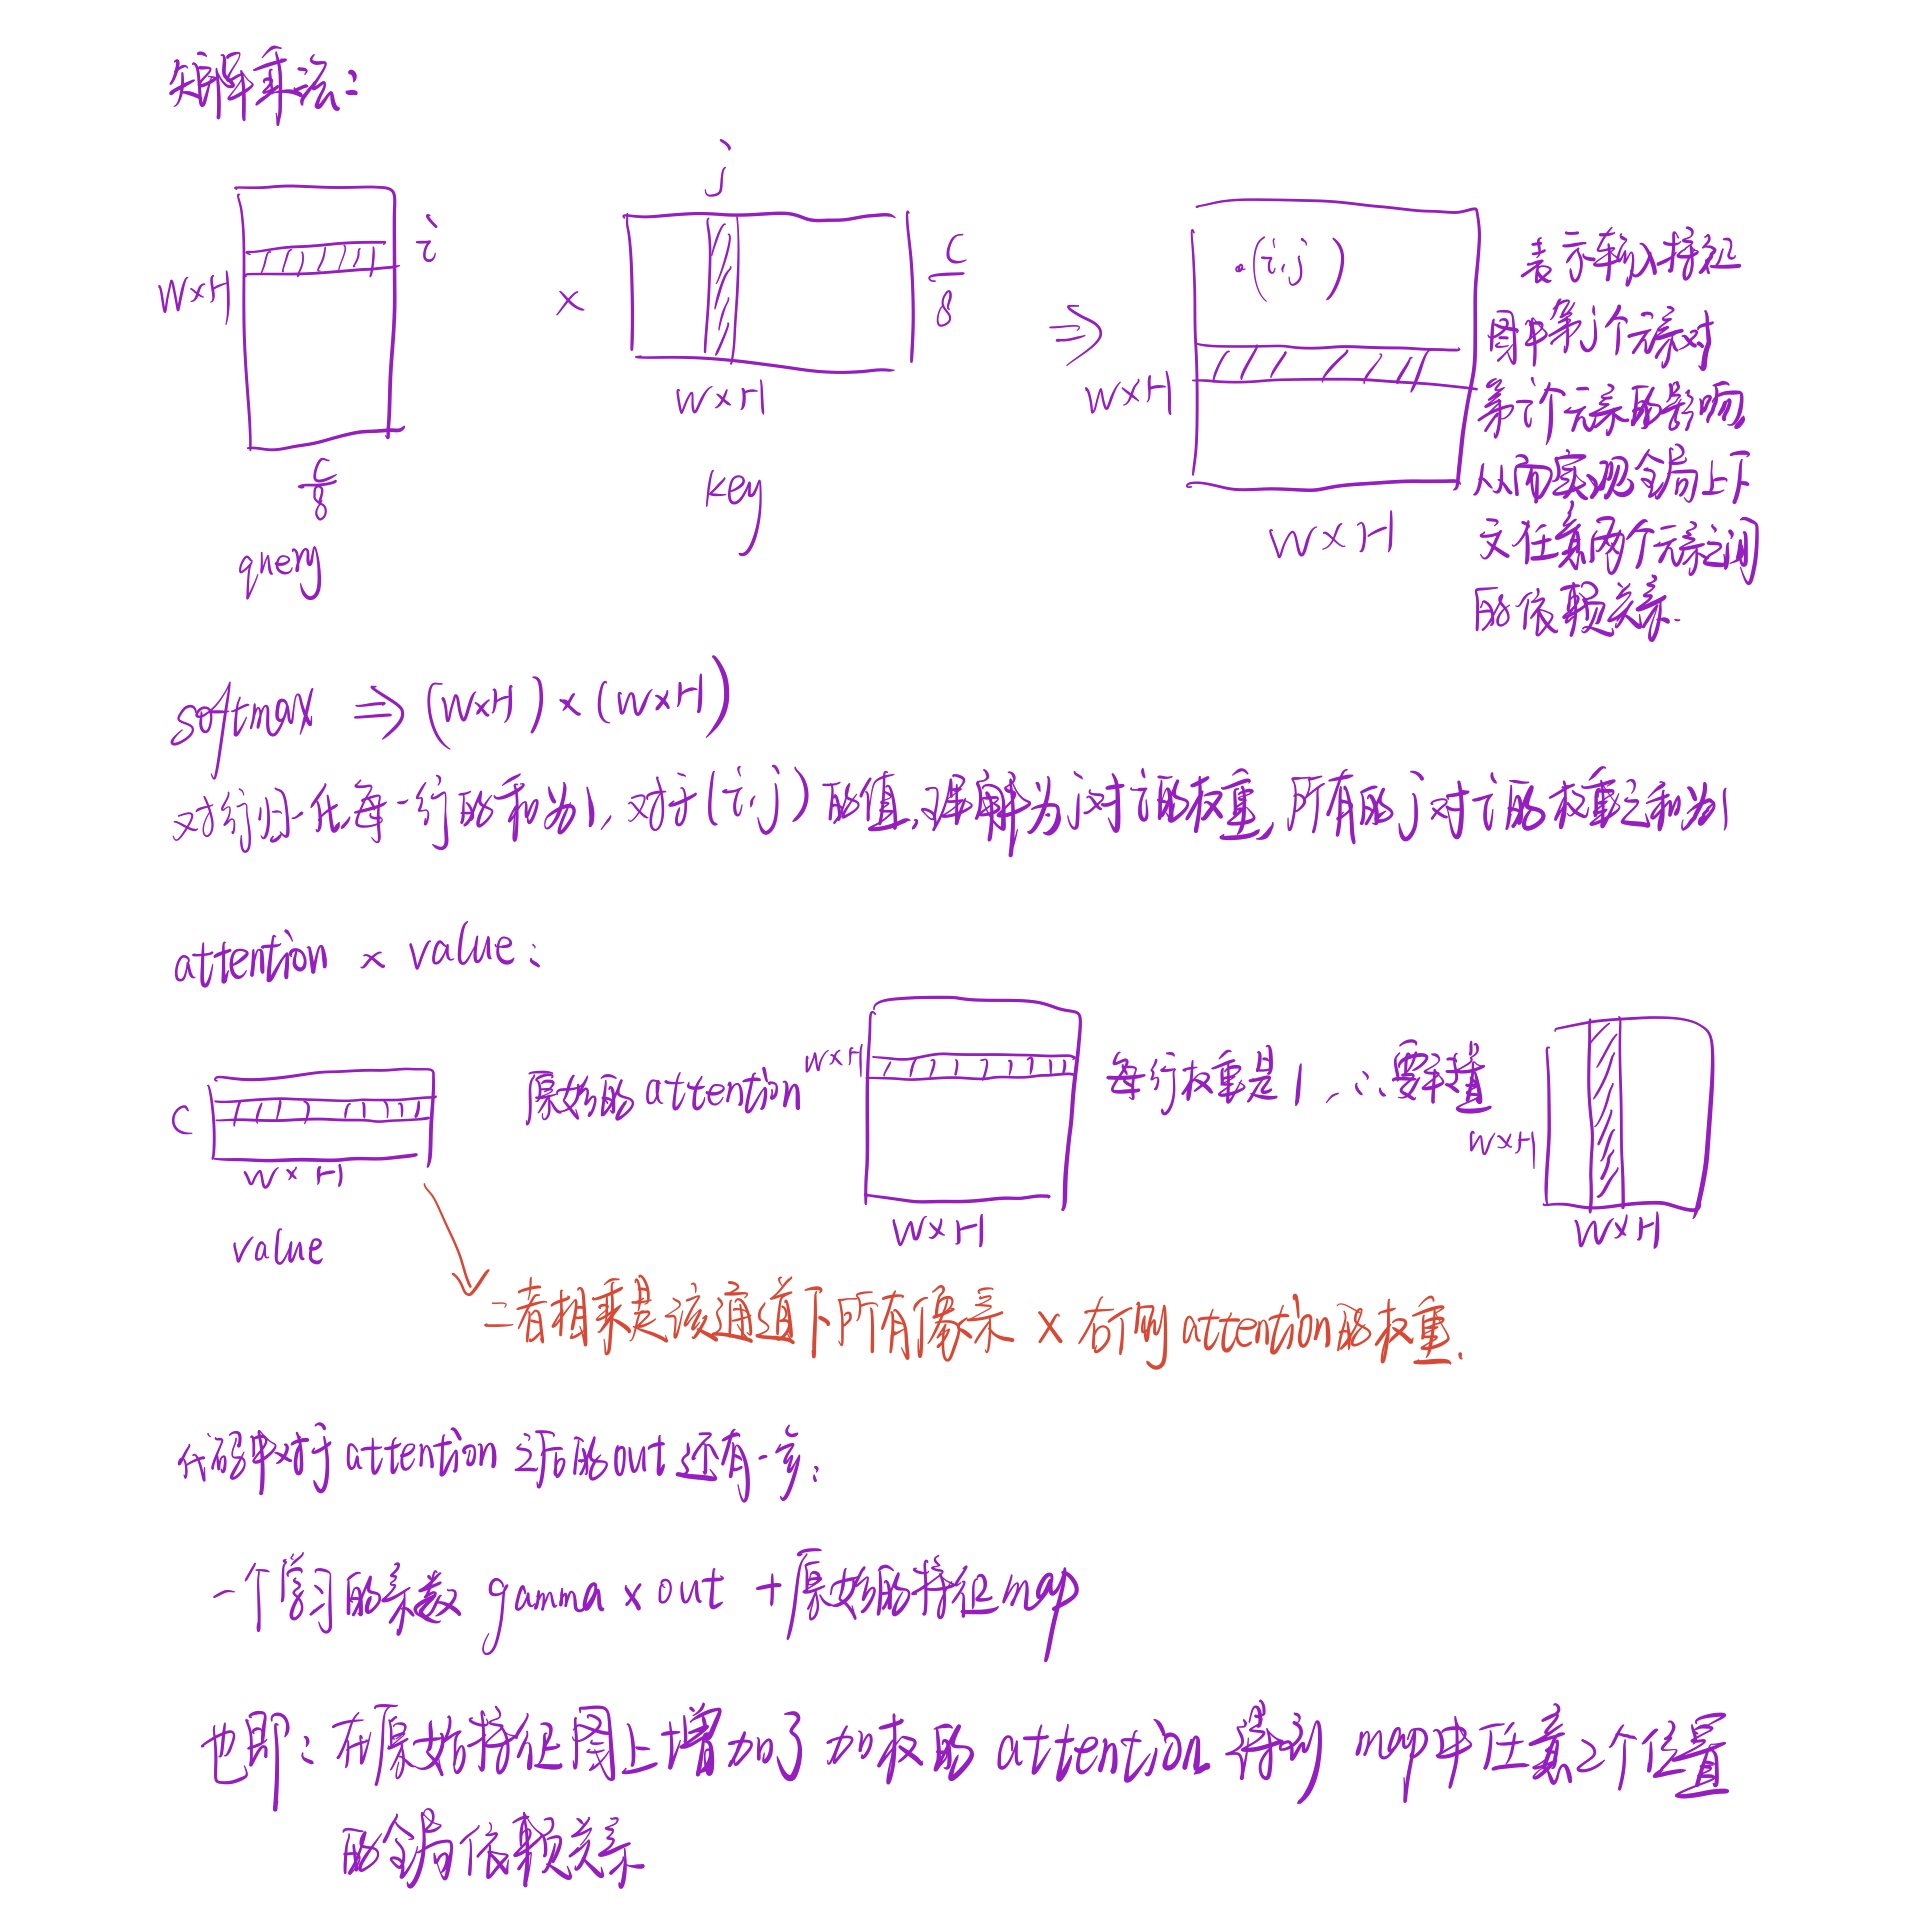 矩阵乘法:
j
i
W×H
×
C/8
⇒
(i,j)
W×H
W×H
C/8
W×H
query
key
表示输入特征
图中第j个元素对
第i个元素的影响,
从而实现全局上下
文任意两个元素之间
的依赖关系.
softmax ⇒ (W×H) × (W×H)
对行归一化,每一行的和为1, 对于(i,j)的值,理解为j对i的权重, 所有的j对i的权重之和为1
attention × value:
C
W×H
value
原始的 attention
W×H
W×H
每行权重是1, ∴要转置
W×H
W×H
二者相乘是该通道下所有像素 × 右侧attention的权重.
attention 之后的out还有一步:
一个学习的系数 gamma × out + 原始的特征map
也即: 在原始特征图上增加了加权的 attention 得到 map中任意2个位置
的全局依赖关系